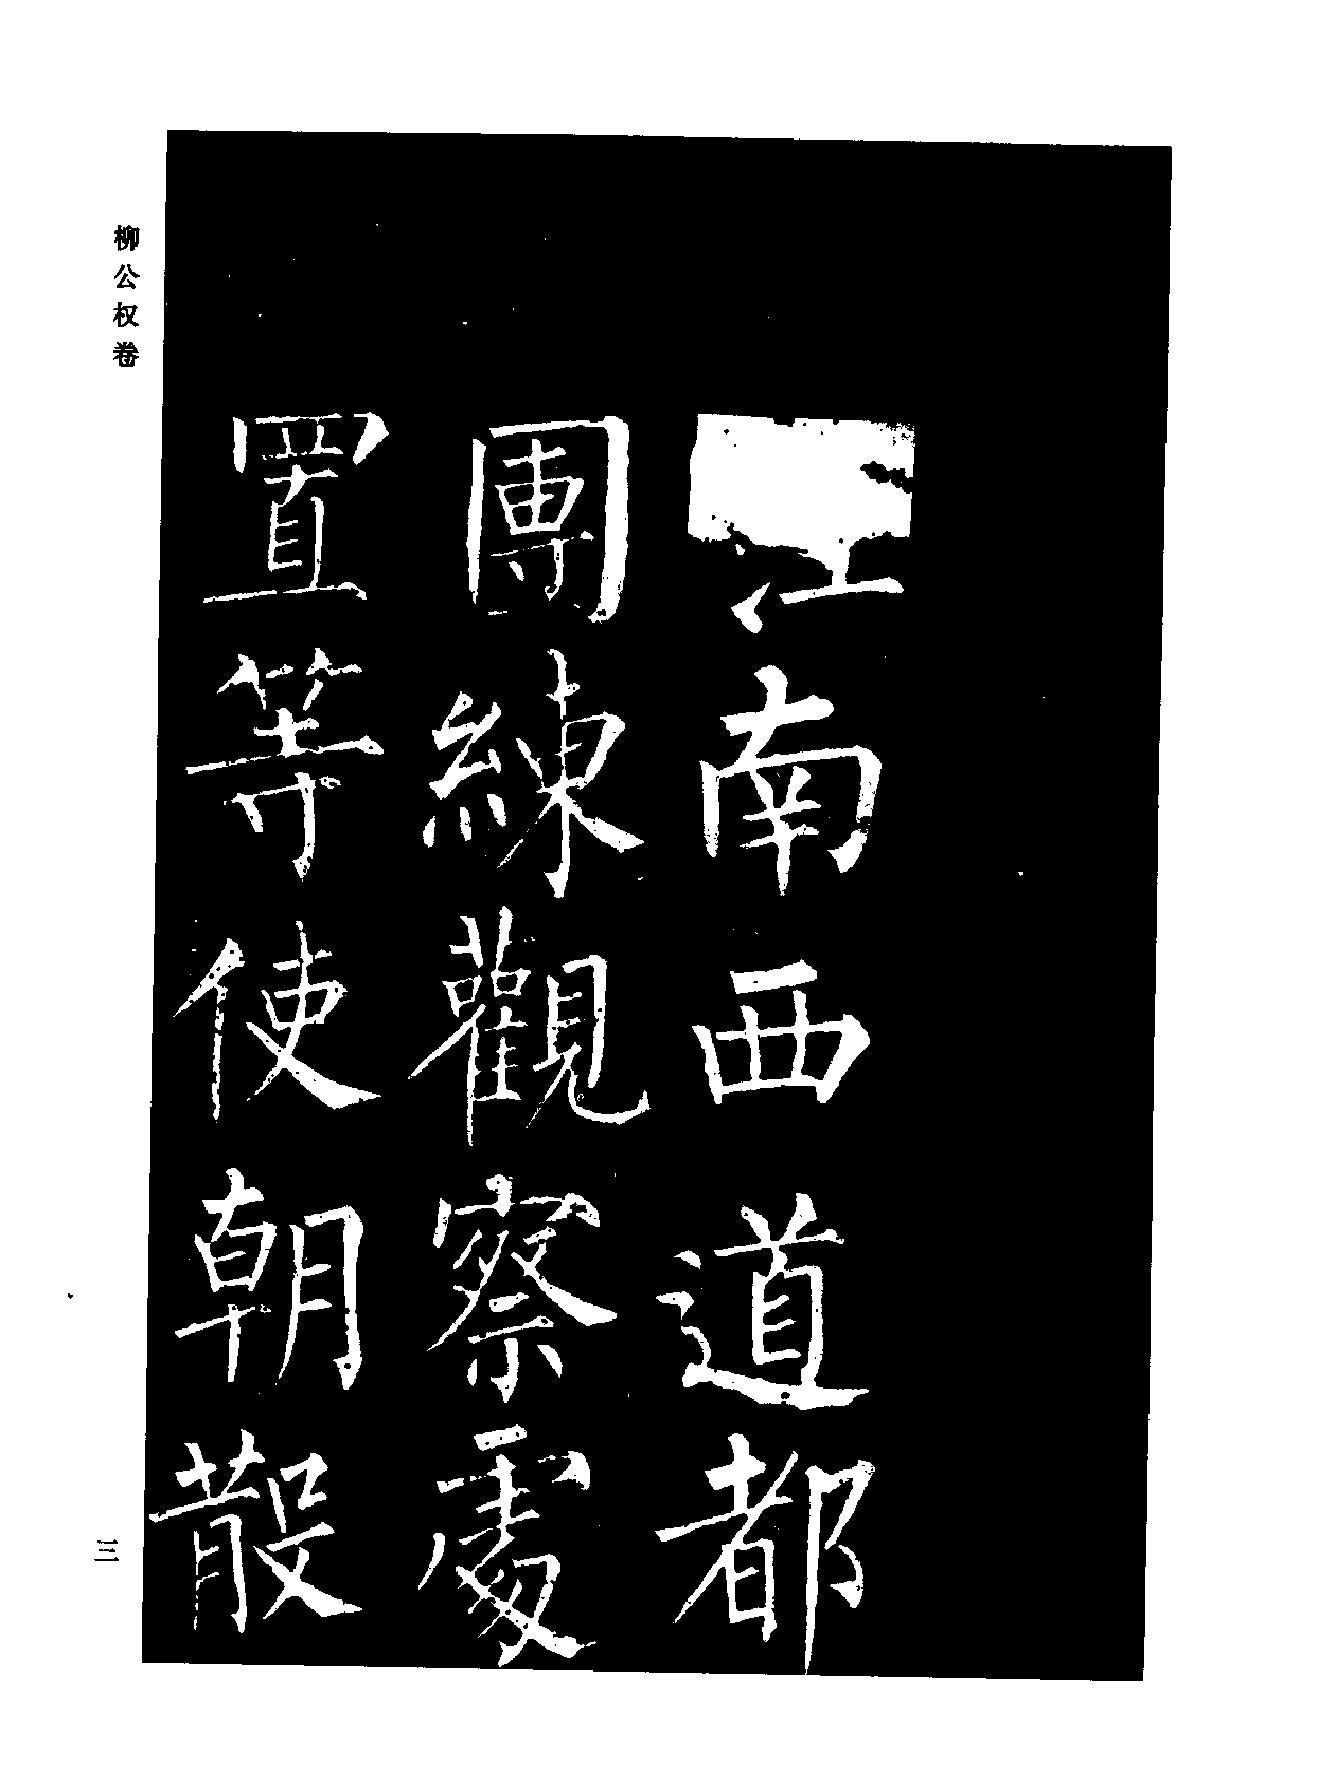 江南西道都
團練觀察處
置等使朝散
柳公权卷
三